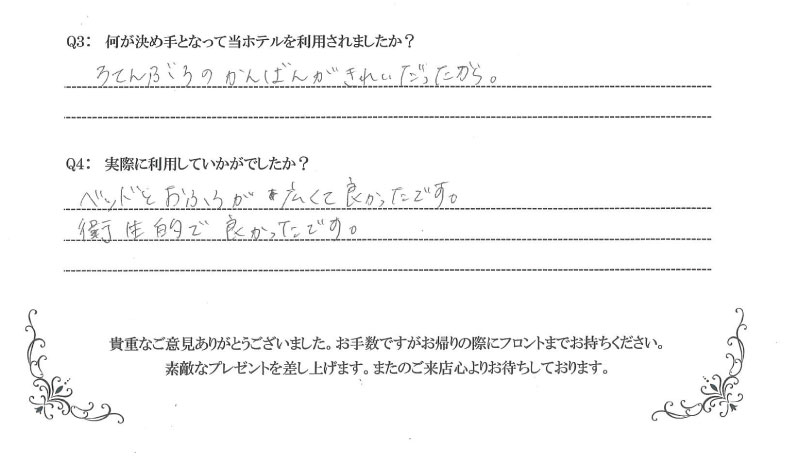 Q3: 何が決め手となって当ホテルを利用されましたか?
ろてんぶろのかんばんがきれいだったから。
Q4: 実際に利用していかがでしたか?
ベッドとおふろが広くて良かったです。
衛生的で良かったです。
貴重なご意見ありがとうございました。お手数ですがお帰りの際にフロントまでお持ちください。
素敵なプレゼントを差し上げます。またのご来店心よりお待ちしております。